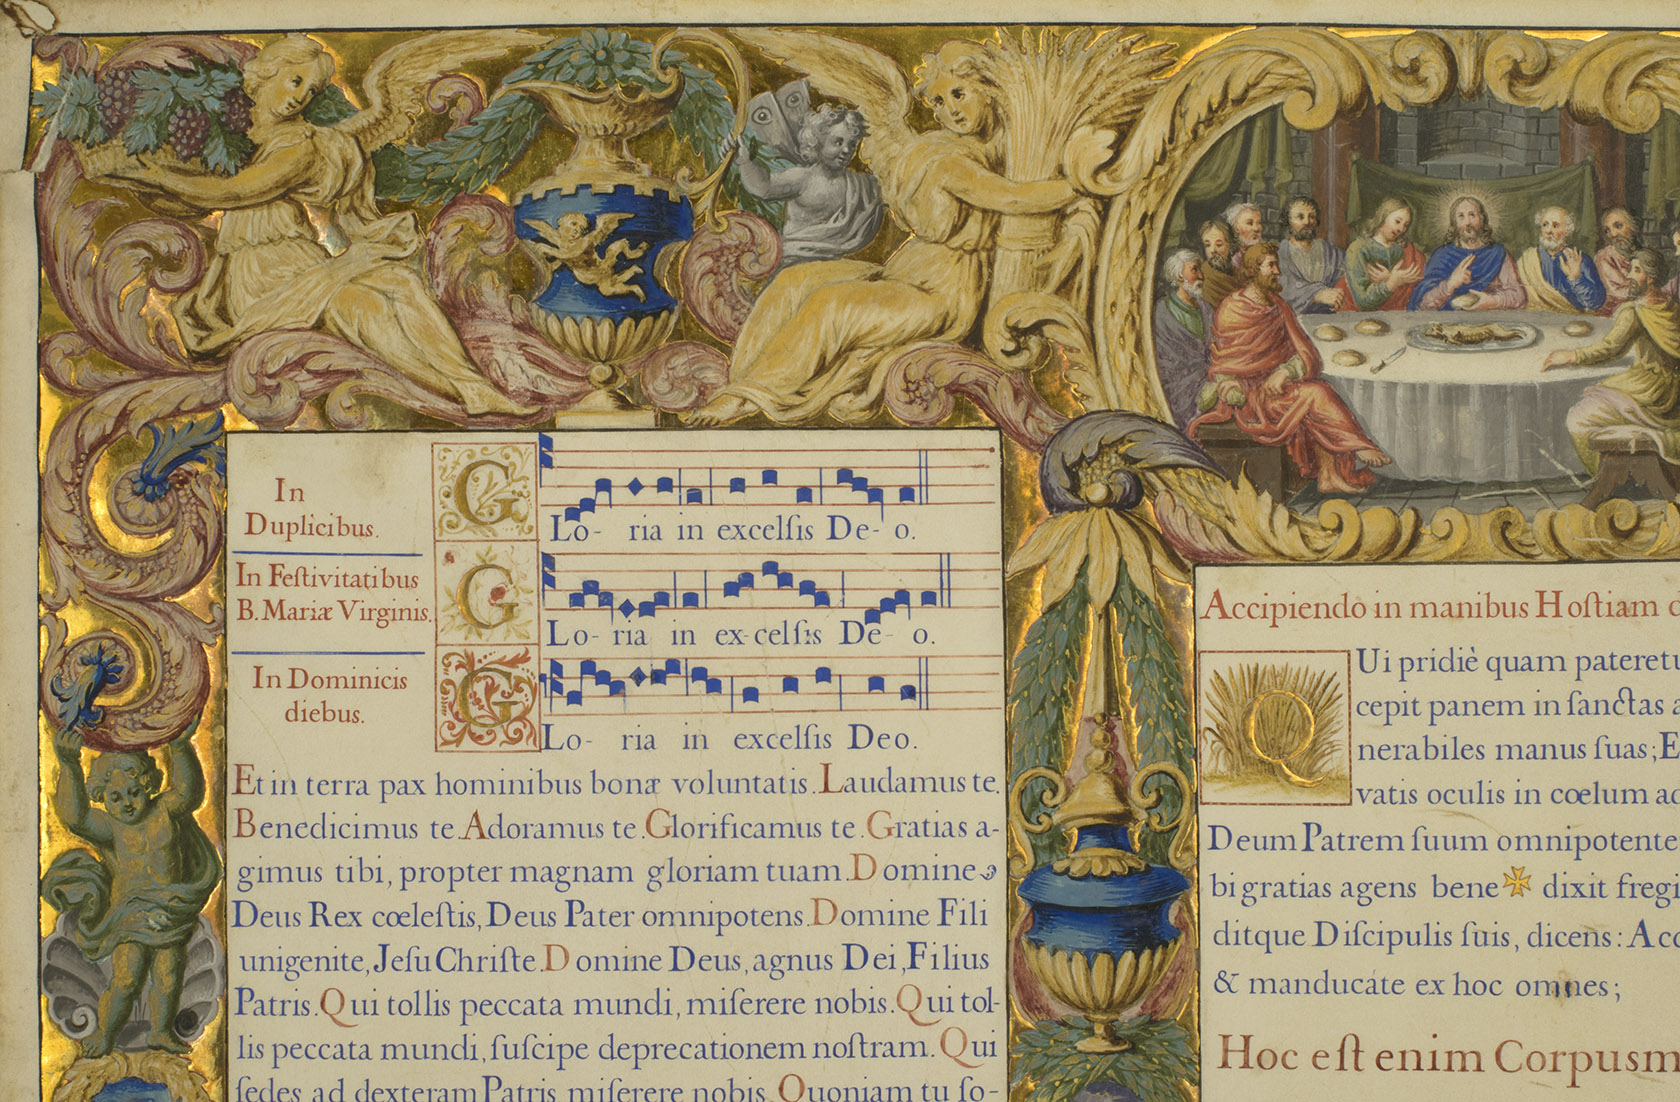 In
Duplicibus.
G Lo- ria in excelſis De- o.
In Feſtivitatibus
B. Mariæ Virginis.
G Lo- ria in ex-celſis De- o.
In Dominicis
diebus.
G Lo- ria in excelſis Deo.
Et in terra pax hominibus bonæ voluntatis. Laudamus te.
Benedicimus te. Adoramus te. Glorificamus te. Gratias a-
gimus tibi, propter magnam gloriam tuam. Domine
Deus Rex cœleſtis, Deus Pater omnipotens. Domine Fili
unigenite, Jeſu Chriſte. Domine Deus, agnus Dei, Filius
Patris. Qui tollis peccata mundi, miſerere nobis. Qui tol-
lis peccata mundi, ſuſcipe deprecationem noſtram. Qui
ſedes ad dexteram Patris miſerere nobis. Quoniam tu ſo-
Accipiendo in manibus Hoſtiam
Q Ui pridiè quam pateretu
cepit panem in ſanctas a
nerabiles manus ſuas; E
vatis oculis in cœlum ad
Deum Patrem ſuum omnipotente
bi gratias agens bene ✠ dixit fregi
ditque Diſcipulis ſuis, dicens: Acc
& manducate ex hoc omnes;
Hoc eſt enim Corpus m